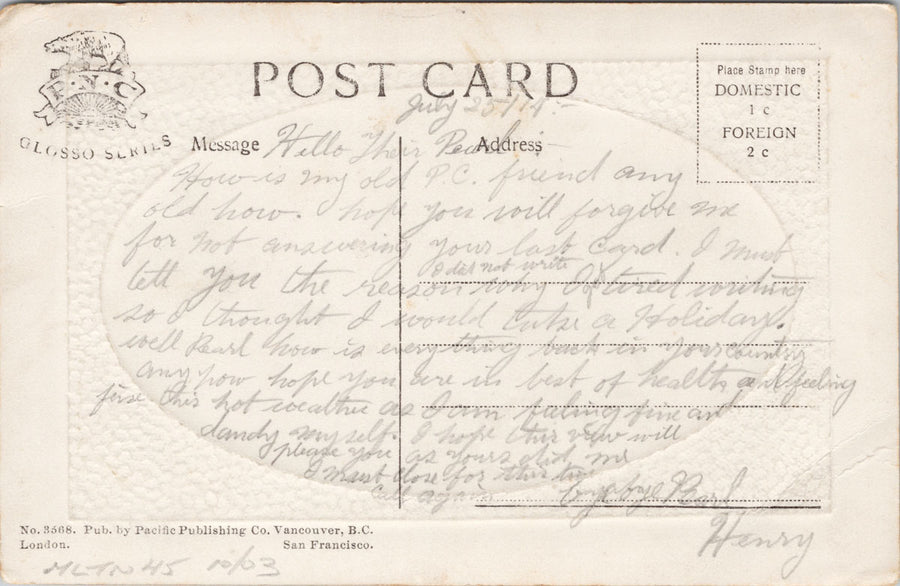 P·N·C
GLOSSO SERIES
POST CARD
Place Stamp here
DOMESTIC
1 c
FOREIGN
2 c
Message
Address
July 25/14.-
Hello Their Pearl:-
How is my old P.C. friend any
old how. hope you will forgive me
for not answering your last Card. I must
I did not write
tell you the reason why I tired writing
so I thought I would take a Holiday.
well Pearl how is everything back in your country
anyhow hope you are in best of health and feeling
fine this hot weather as I am feeling fine and
dandy myself. I hope this view will
please you as yours did me
I must close for this time
Call again bye bye Pearl
Henry
No. 3568. Pub. by Pacific Publishing Co. Vancouver, B.C.
London. San Francisco.
10/03